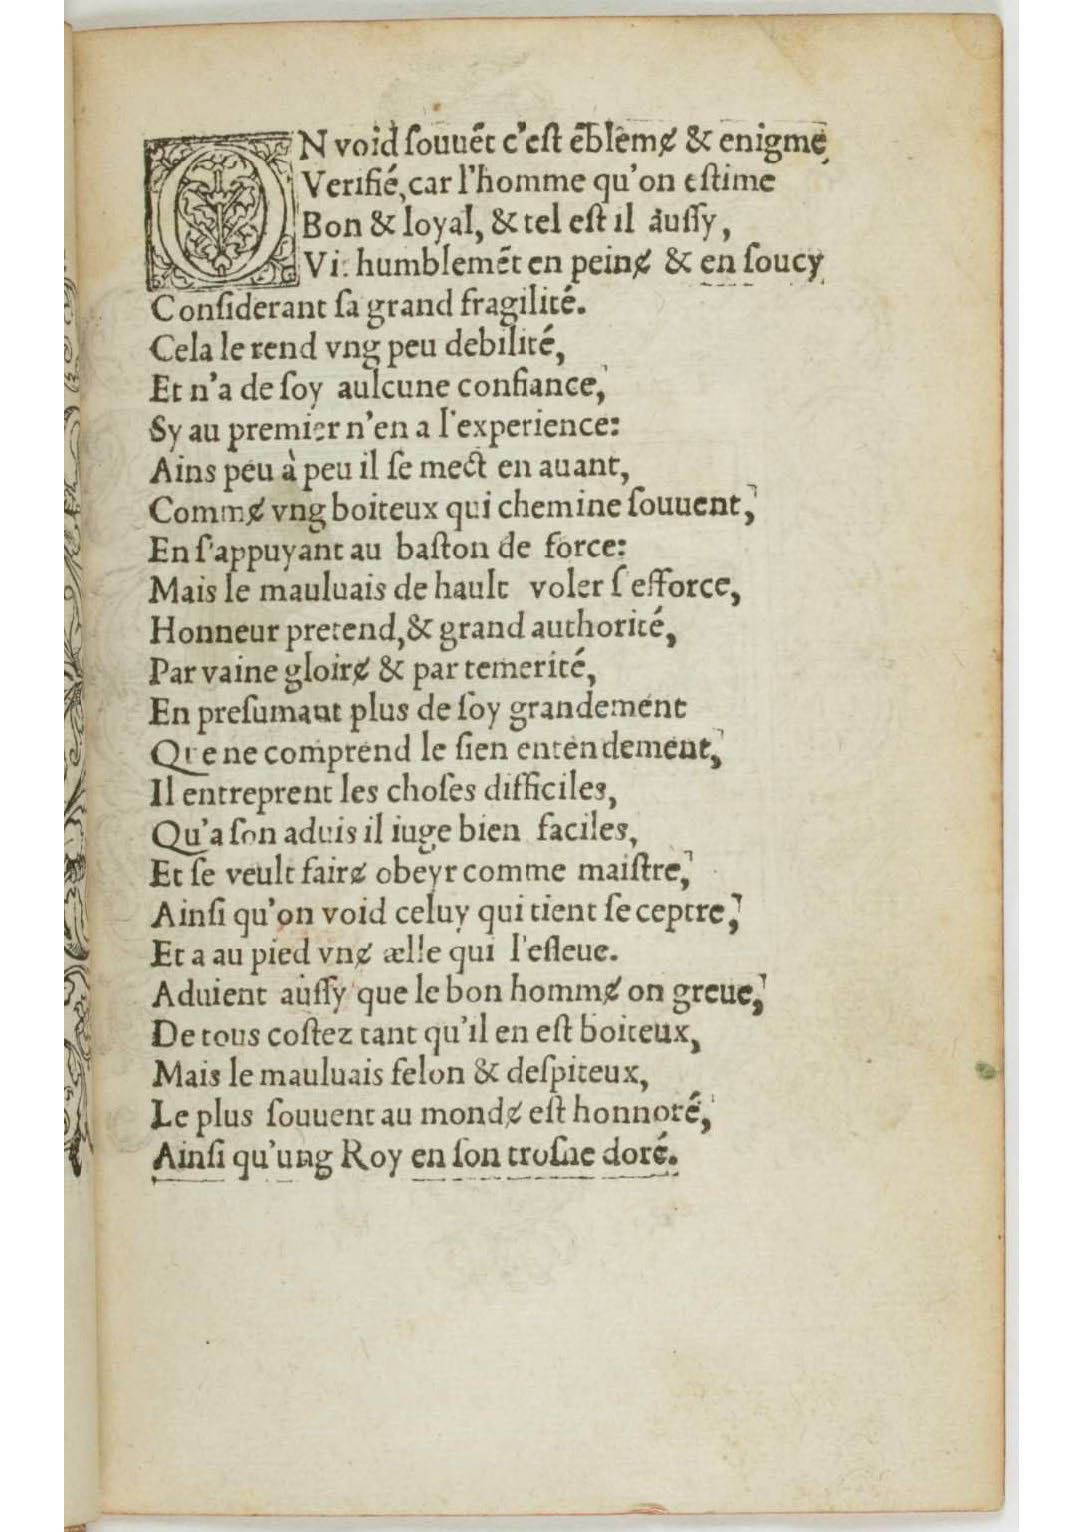 ON void souuẽt c'est ẽblemɇ & enigme
Verifié, car l'homme qu'on estime
Bon & loyal, & tel est il aussy,
Vit humblemẽt en peinɇ & en soucy
Considerant sa grand fragilité.
Cela le rend vng peu debilité,
Et n'a de soy aulcune confiance,
Sy au premier n'en a l'experience:
Ains peu à peu il se mect en auant,
Commɇ vng boiteux qui chemine souuent,
En s'appuyant au baston de force:
Mais le mauluais de hault voler s'efforce,
Honneur pretend, & grand authorité,
Par vaine gloirɇ & par temerité,
En presumant plus de soy grandement
Que ne comprend le sien entendement,
Il entreprent les choses difficiles,
Qu'a son aduis il iuge bien faciles,
Et se veult fairɇ obeyr comme maistre,
Ainsi qu'on void celuy qui tient se ceptre,
Et a au pied vnɇ ælle qui l'esleue.
Aduient aussy que le bon hommɇ on greue,
De tous costez tant qu'il en est boiteux,
Mais le mauluais felon & despiteux,
Le plus souuent au mondɇ est honnoré,
Ainsi qu'ung Roy en son trosne doré.